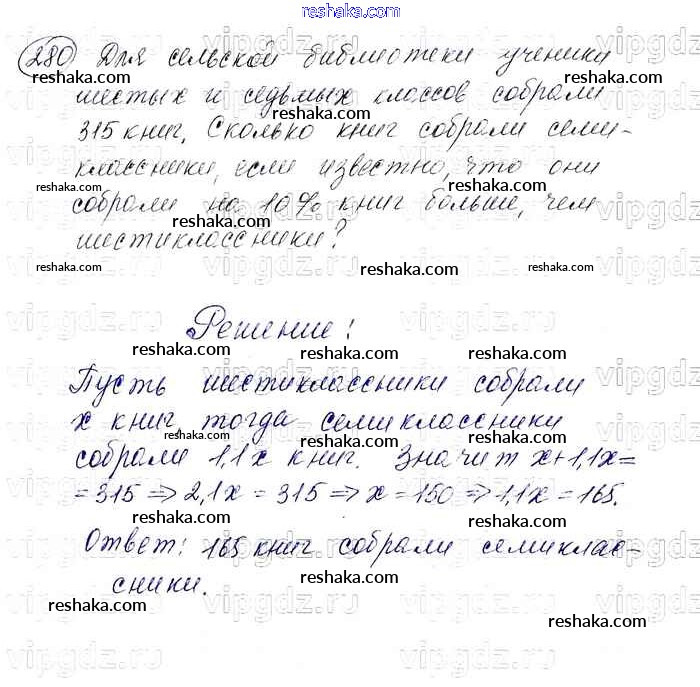 reshaka.com
280 Для сельской библиотеки ученики
шестых и седьмых классов собрали
315 книг. Сколько книг собрали семи-
классники, если известно, что они
собрали на 10% книг больше, чем
шестиклассники?
Решение:
Пусть шестиклассники собрали
x книг, тогда семиклассники
собрали 1,1x книг. Значит x+1,1x=
=315 => 2,1x = 315 => x = 150 => 1,1x = 165.
Ответ: 165 книг собрали семиклас-
сники.